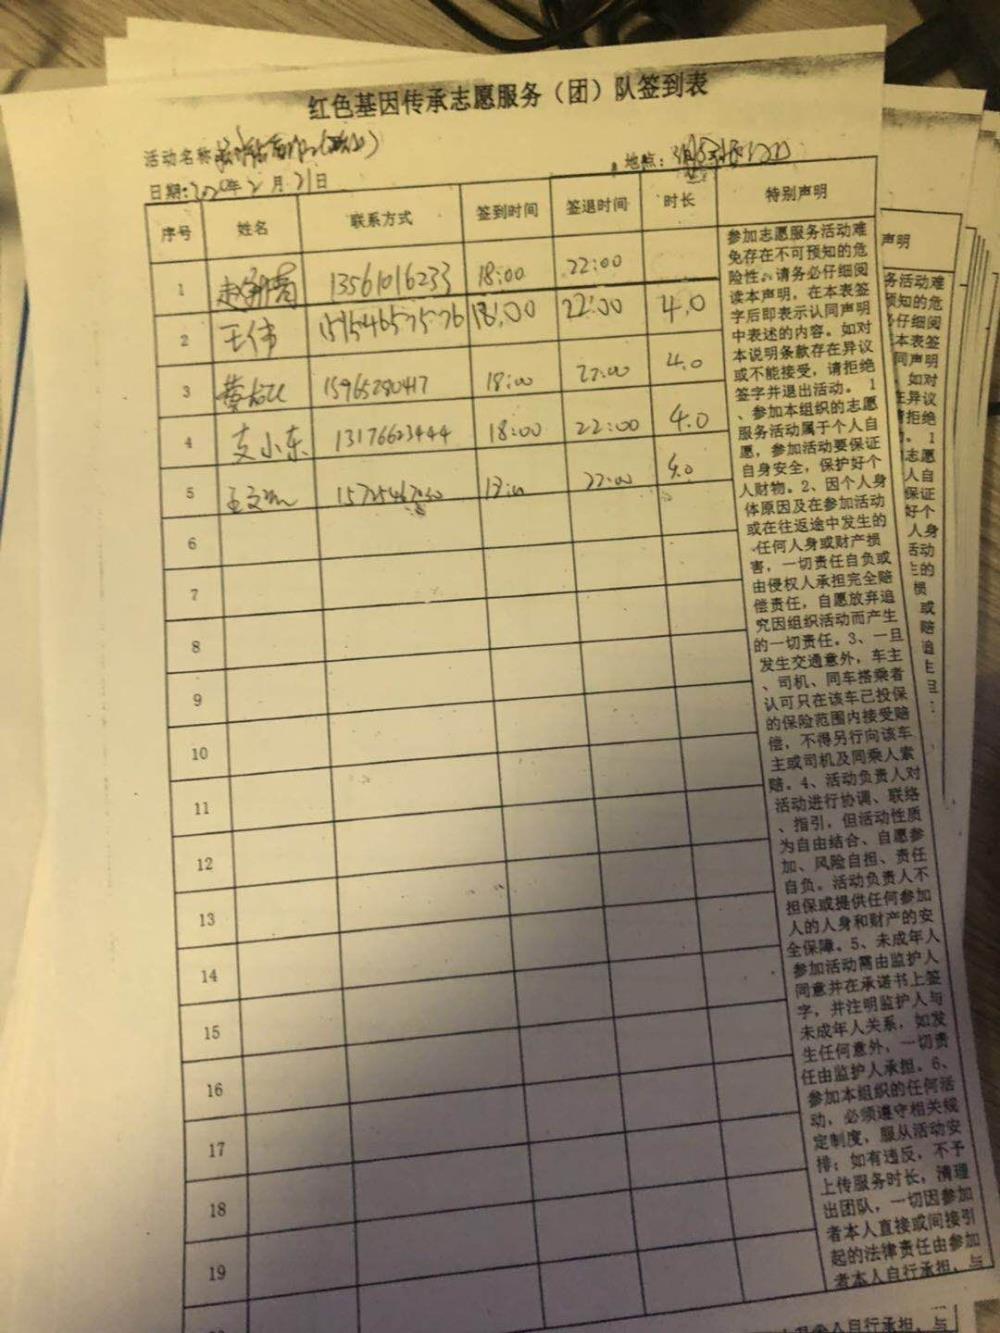 红色基因传承志愿服务（团）队签到表
活动名称
地点：
日期：2020年2月21日
序号 姓名 联系方式 签到时间 签退时间 时长 特别声明
1 13561016233 18:00 22:00
2 王伟 15954657576 18:00 22:00 4.0
3 15965280417 18:00 22:00 4.0
4 支小东 13176623444 18:00 22:00 4.0
5 22:00
6
7
8
9
10
11
12
13
14
15
16
17
18
19
参加志愿服务活动难
免存在不可预知的危
险性。请务必仔细阅
读本声明，在本表签
字后即表示认同声明
中表述的内容。如对
本说明条款存在异议
或不能接受，请拒绝
签字并退出活动。1
、参加本组织的志愿
服务活动属于个人自
愿，参加活动要保证
自身安全，保护好个
人财物。2、因个人身
体原因及在参加活动
或在往返途中发生的
任何人身或财产损
害，一切责任自负或
由侵权人承担完全赔
偿责任，自愿放弃追
究因组织活动而产生
的一切责任。3、一旦
发生交通意外，车主
、司机、同车搭乘者
认可只在该车已投保
的保险范围内接受赔
偿，不得另行向该车
主或司机及同乘人索
赔。4、活动负责人对
活动进行协调、联络
、指引，但活动性质
为自由结合、自愿参
加、风险自担、责任
自负。活动负责人不
担保或提供任何参加
人的人身和财产的安
全保障。5、未成年人
参加活动需由监护人
同意并在承诺书上签
字，并注明监护人与
未成年人关系，如发
生任何意外，一切责
任由监护人承担。6、
参加本组织的任何活
动，必须遵守相关规
定制度，服从活动安
排；如有违反，不予
上传服务时长，清理
出团队，一切因参加
者本人直接或间接引
起的法律责任由参加
者本人自行承担，与
声明
务活动难
预知的危
必仔细阅
本表签
同声明
如对
在异议
青拒绝
。1
志愿
人自
保证
好个
人身
活动
的
损
或
赔
追
生
旦
人自行承担，与